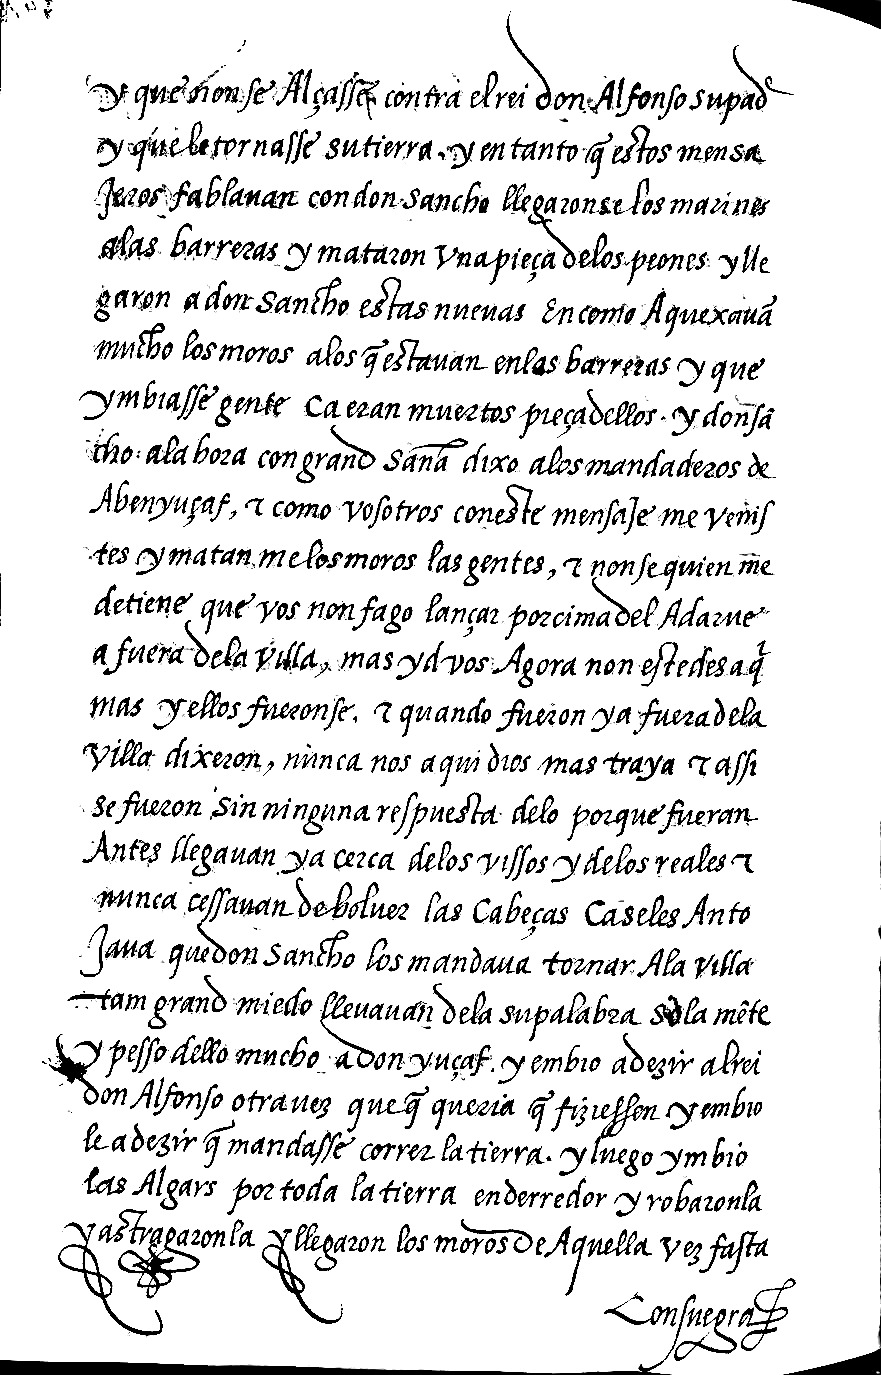 y que non se Alçasse contra el rei don Alfonso su pad̃
y que le tornasse su tierra. y en tanto q̃ estos mensa
Jeros fablauan con don Sancho llegaronse los marines
alas barreras y mataron vna pieça delos peones y lle
garon a don Sancho estas nueuas En como Aquexauã
mucho los moros alos q̃ estauan en las barreras y que
ymbiasse gente Ca eran muertos pieça dellos. y don Sã
cho. ala hora con grand Saña dixo alos mandaderos de
Abenyuçaf, τ como vosotros con este mensaJe me venis
tes y matan me los moros las gentes, τ non se quien me
detiene que vos non fago lançar por cima del Adarue
a fuera dela villa, mas yd vos Agora non estedes a q̃
mas y ellos fueronse. τ quando fueron ya fuera dela
villa dixeron, nunca nos aqui dios mas traya τ assi
se fueron Sin ninguna respuesta delo porque fueran
Antes llegauan ya cerca delos vissos y delos reales τ
nunca cessauan de boluer las Cabeças Ca seles Anto
Jaua que don Sancho los mandaua tornar Ala villa
tam grand miedo lleuauan dela su palabra sola mẽte
y pesso dello mucho a don yuçaf. y embio a dezir al rei
don Alfonso otra vez que q̃ queria q̃ fiziessen y embio
le a dezir q̃ mandasse correr la tierra. y luego ymbio
las Algars por toda la tierra enderredor y robaronla
y astragaronla y llegaron los moros de Aquella vez fasta
Consuegra